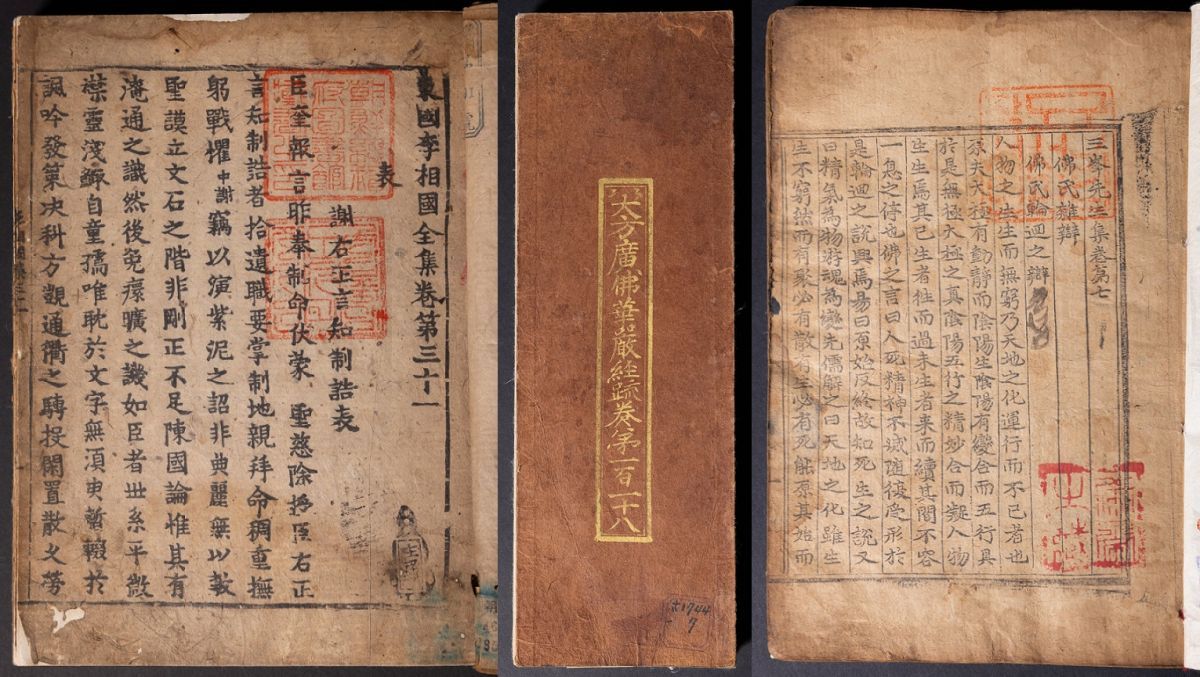 東國李相國全集卷第三十一
表
謝右正言知制誥表
臣奎報言昨奉制命伏蒙 聖慈除授臣右正
言知制誥者拾遺職要掌制地親拜命稠重撫
躬戰懼中謝竊以演紫泥之詔非典麗無以敷
聖謨立文石之階非剛正不足陳國論惟其有
淹通之識然後免瘝曠之譏如臣者世系平微
葉靈淺鮮自童孺唯耽於文字無須臾暫輟於
諷吟發策决科方觀通衢之騁投閑置散久勞
大方廣佛華嚴經疏卷第一百二十八
古1744
7
三峯先生集卷第七
佛氏雜辯
佛氏輪迴之辯
人物之生生而無窮乃天地之化運行而不已者也
原夫太極有動靜而陰陽生陰陽有變合而五行具
於是無極太極之真陰陽五行之精妙合而凝人物
生生焉其已生者往而過未生者来而續其間不容
一息之停也佛之言曰人死精神不滅隨復受形於
是輪迴之說興焉易曰原始反終故知死生之說又
曰精氣為物游魂為變先儒解之曰天地之化雖生
生不窮然而有聚必有散有生必有死能原其始而